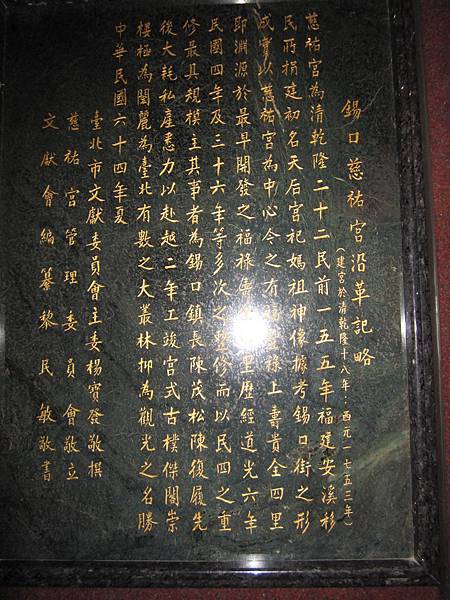 錫口慈祐宮沿革記略
(建宮於清乾隆十八年·西元一七五三年)
慈祐宮為清乾隆二十二民前一五五年福建安溪移
民所捐建初名天后宮祀媽祖神像據考錫口街之形
成實以慈祐宮為中心今之有福里祿上壽貴全四里
即淵源於最早開發之福祿壽里歷經道光六年
民國四年及三十六年等多次之整修而以民四之重
修最具規模主其事者為錫口鎮長陳茂松陳復履先
後大耗私產悉力以赴越二年工竣宮式古樸傑閣崇
樓極為閎麗為臺北有數之大叢林抑為觀光之名勝
中華民國六十四年夏
臺北市文獻委員會主委楊寶發敬撰
慈祐宮管理委員會敬立
文獻會編纂黎民敏敬書